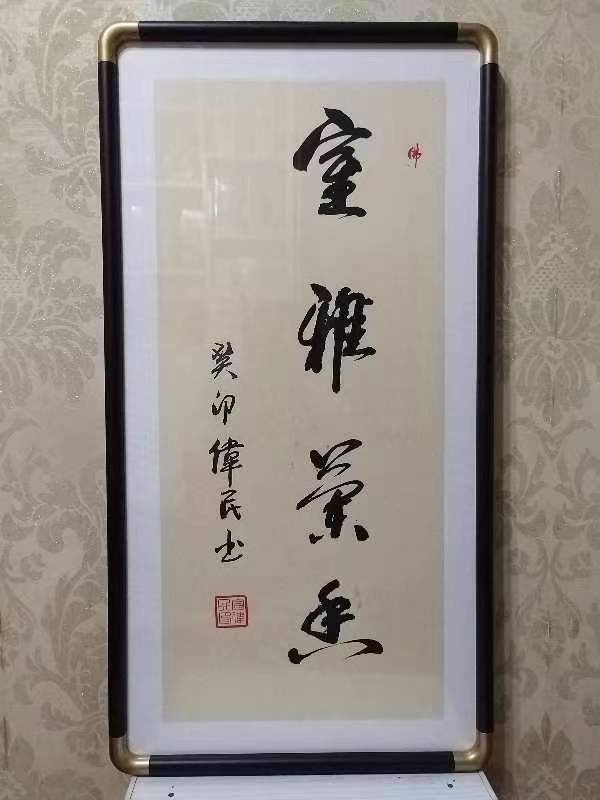 佛
室雅兰香
癸卯偉民书